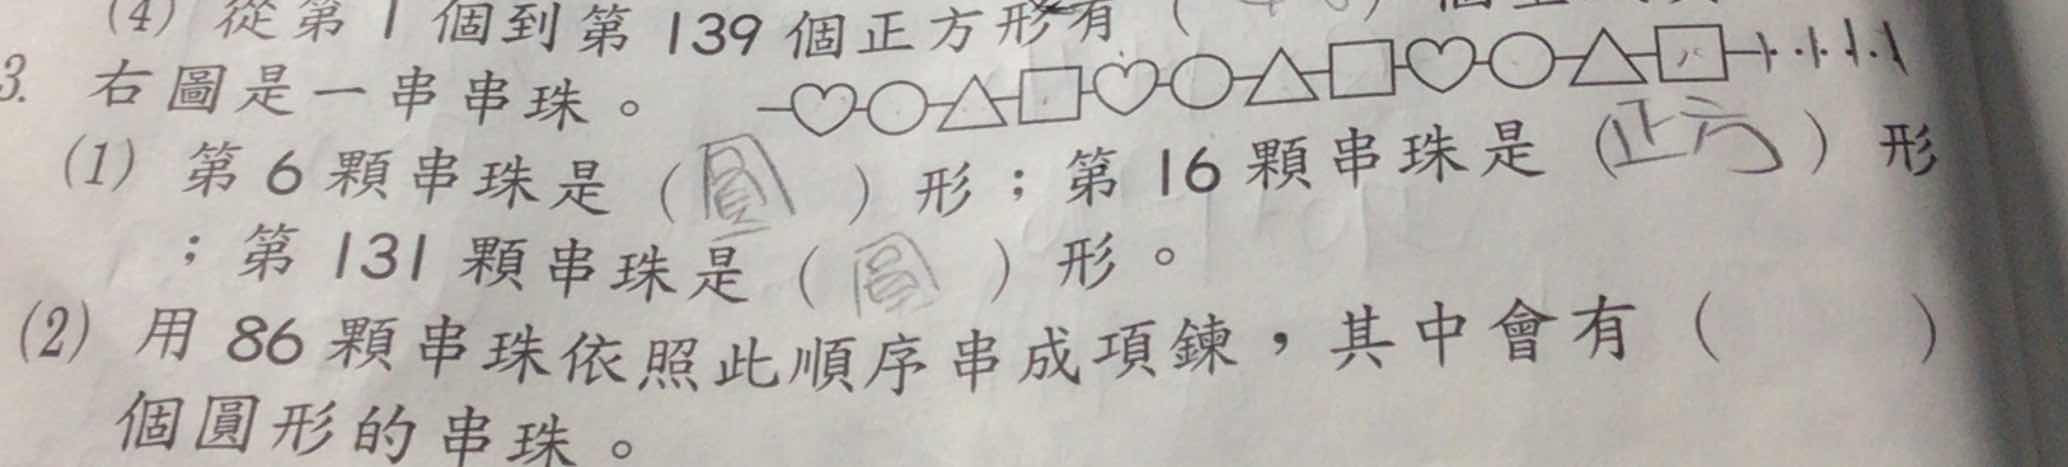 (4) 從第 1 個到第 139 個正方形有 (
3. 右圖是一串串珠。
(1) 第 6 顆串珠是 (圓) 形；第 16 顆串珠是 (正方) 形
；第 131 顆串珠是 (圓) 形。
(2) 用 86 顆串珠依照此順序串成項鍊，其中會有 ( )
個圓形的串珠。